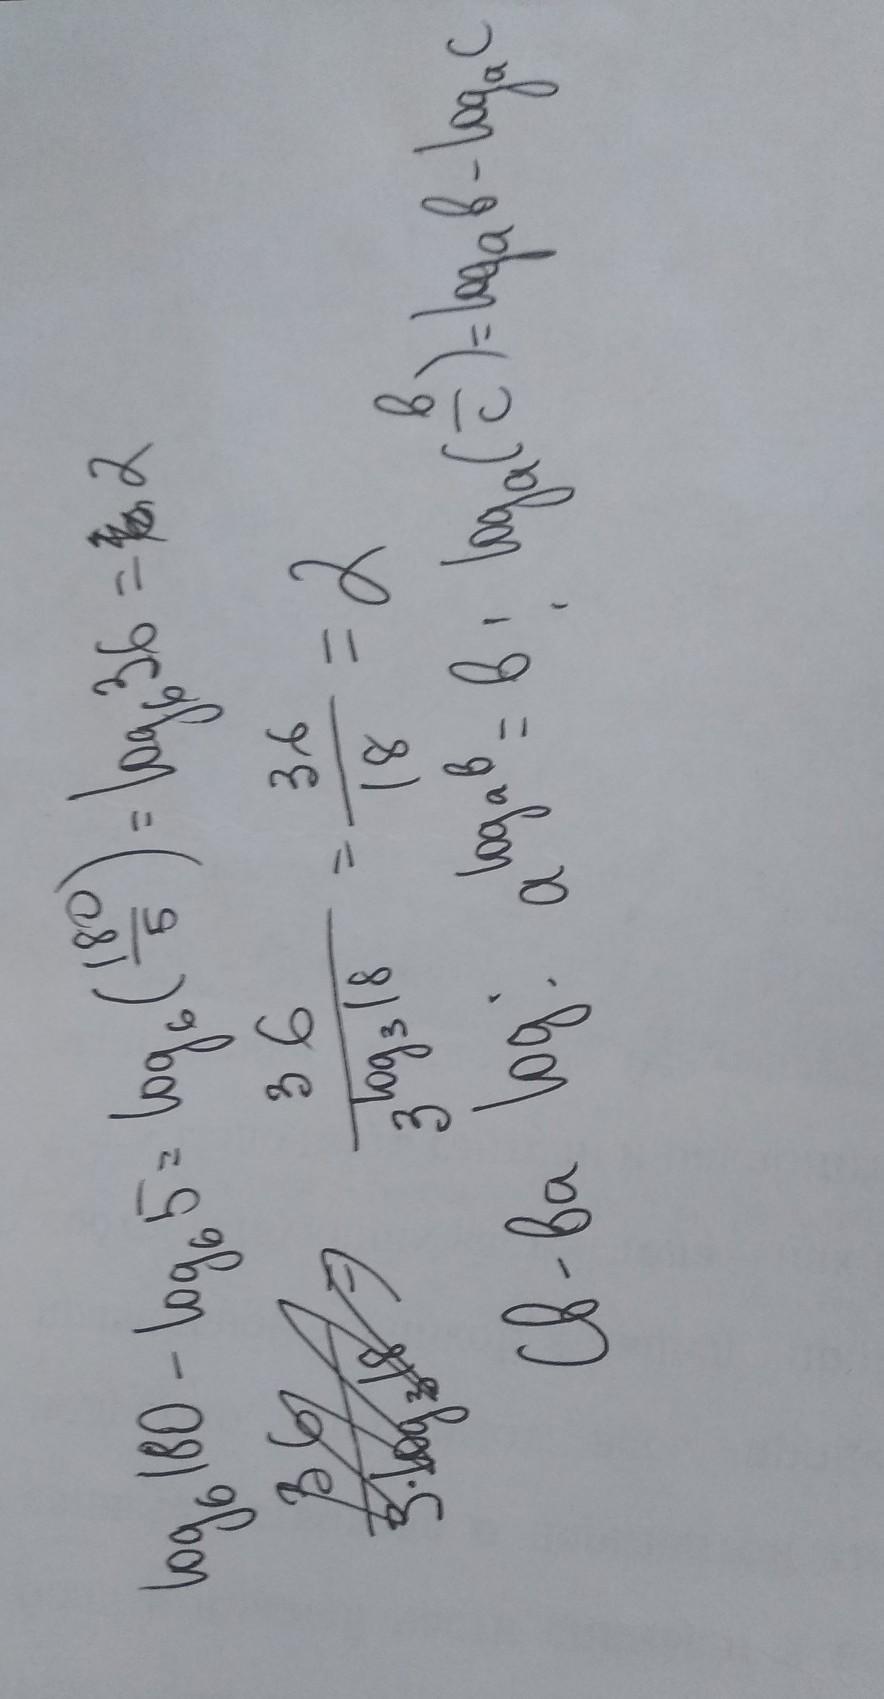 log₆180 - log₆5 = log₆(180/5) = log₆36 = 2
36/3^(log₃18) = 36/18 = 2
Св-ва log: a^(logₐb) = b; logₐ(b/c) = logₐb - logₐc